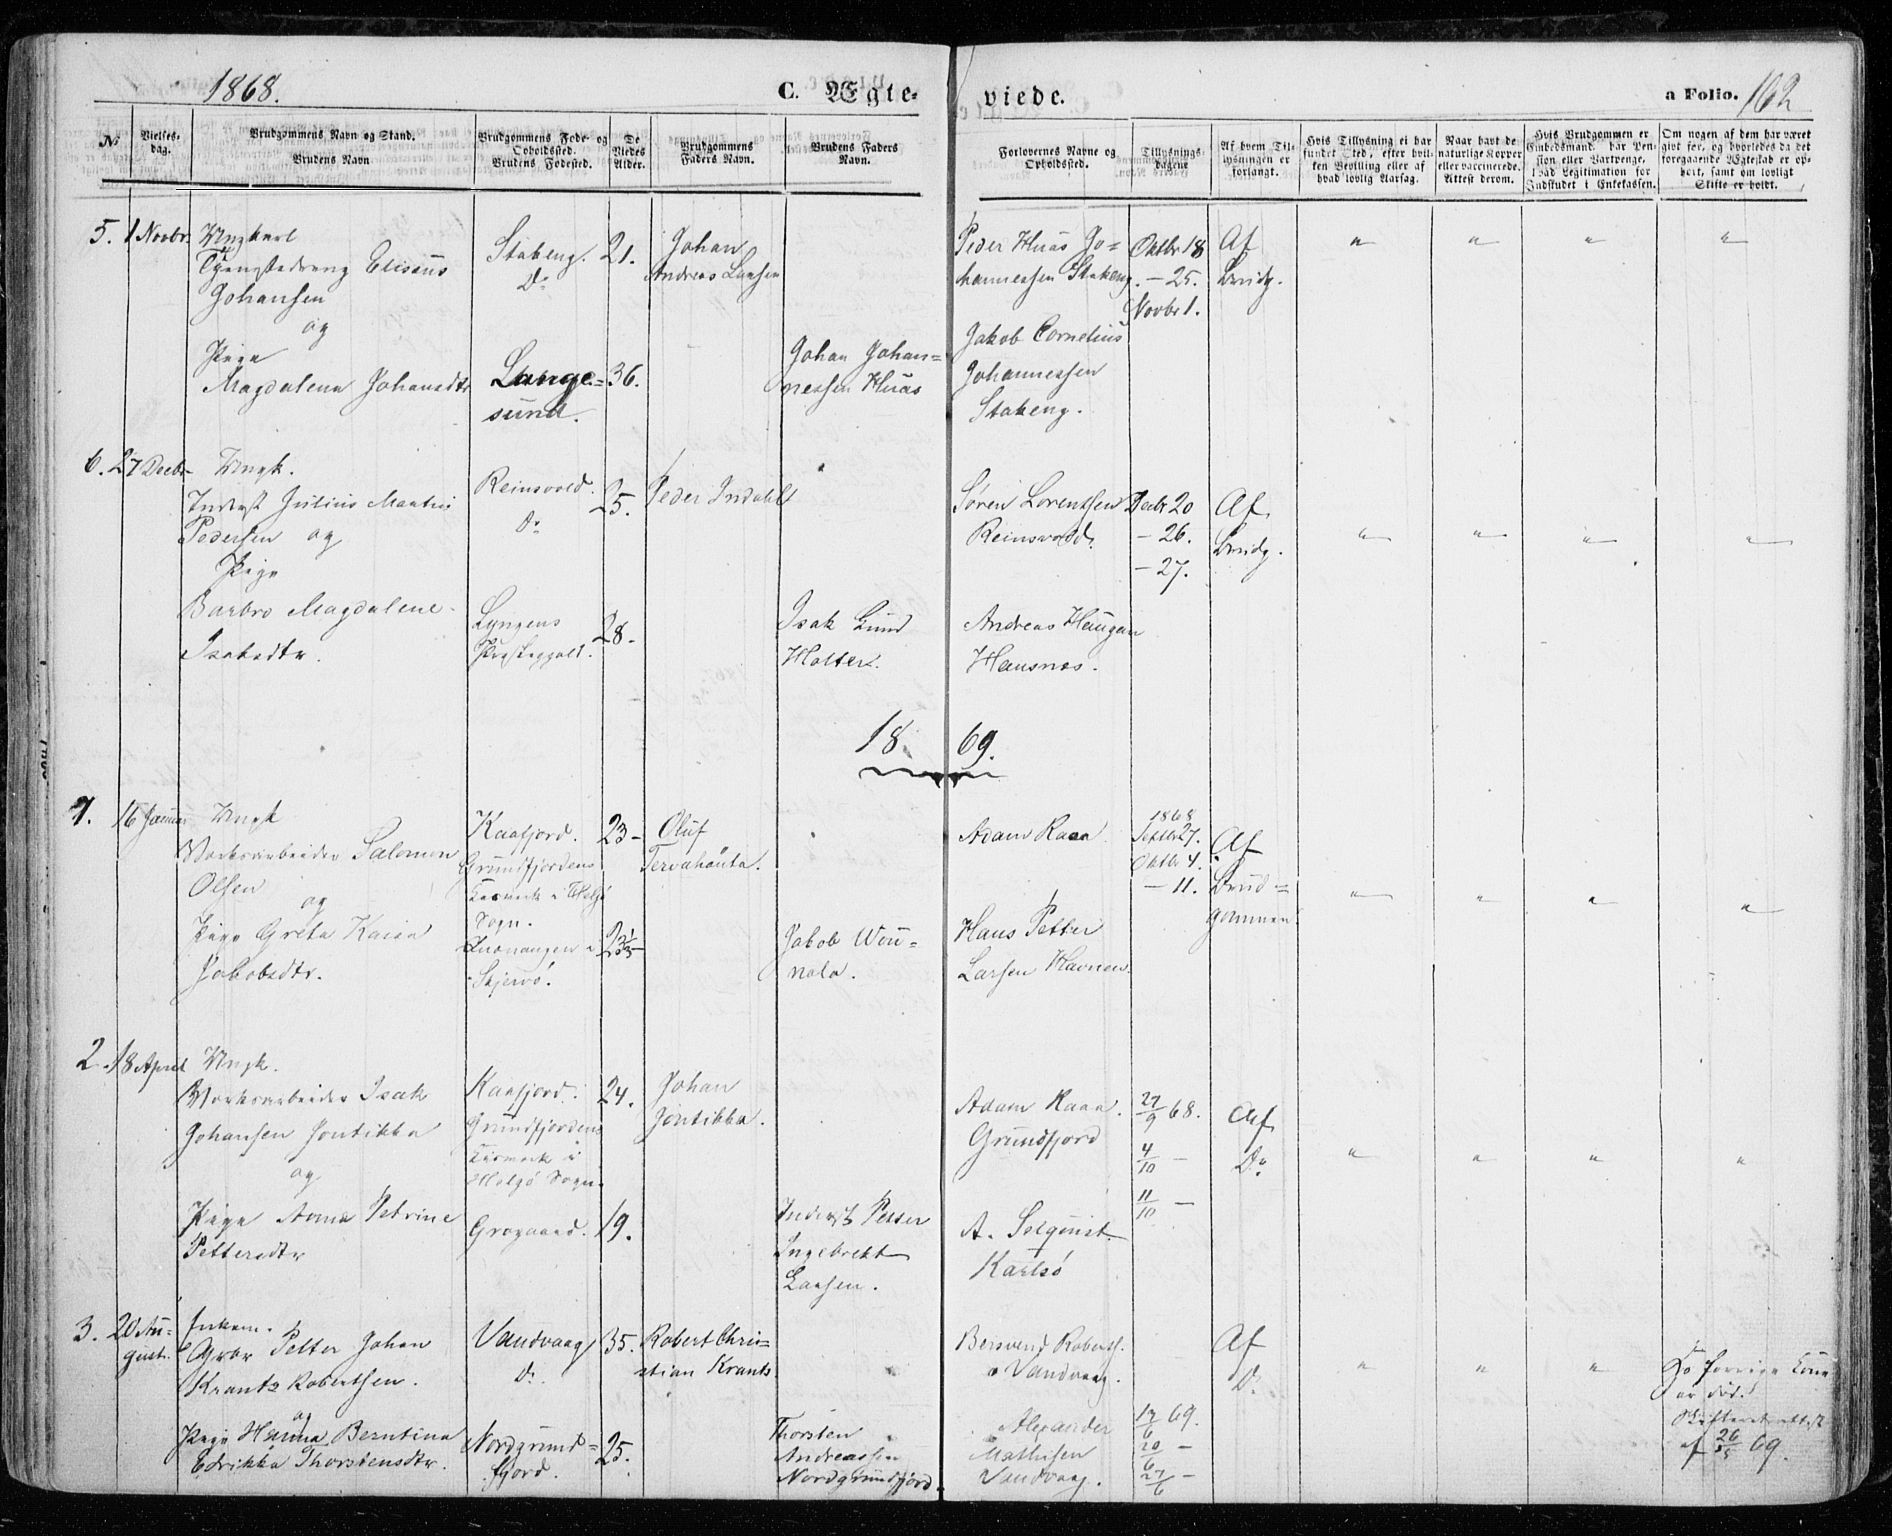 1868.
C. Ægte-
viede.
a Folio. 162
No
Vielses-
dag.
Brudgommens Navn og Stand.
Brudens Navn
Brudgommens Føde- og
Opholdssted.
Brudens Fødested.
De
Viedes
Alder.
Brudgommens
Faders Navn.
Brudens Faders
Navn.
Forlovernes Navne og
Opholdssted.
Tillysnings-
dagene
Af hvem Til-
lysningen er
forlangt.
Hvis Tillysning ei har
fundet Sted, efter hvil-
ken Bevilling eller af
hvad lovlig Aarsag.
Naar havt de
naturlige Kopper
eller vaccinerede.
Attest derom.
Hvis Brudgommen er
Embedsmand, har Pen-
sion eller Vartpenge,
hvad Legitimation for
Indskudet i Enkekassen.
Om nogen af dem har været
gift før, og hvorledes da det
foregaaende Ægteskab er op-
hørt, samt om lovligt
Skifte er holdt.
5. 1 Novbr.
Ungkarl
Tjenestedreng Elisæus
Johansen
og
Pige
Magdalena Johansdtr
Stakeng.
Do
Lange-
sund.
21.
36.
Johan
Andreas Larsen
Johan Johan-
nessen Huas
Peder Huas Jo-
hannessen Stakeng.
Jakob Cornelius
Johannessen
Stakeng.
Oktbr 18
- 25.
Novbr 1.
Af
Brudg.
" " " "
6. 27 Decbr
Ungk.
Inderst Julius Martin
Pedersen og
Pige
Barbro Magdalene
Isaksdtr.
Reinsvold.
Do
Lyngens
Præstegjeld.
25.
28.
Peder Indahl
Isak Lund
Holter.
Søren Lorentsen
Reinsvold.
Andreas Haugan
Hansnes.
Decbr 20
- 26.
- 27.
Af
Brudg.
" " " "
1869.
1. 16 Januar
Ungk
Værksarbeider Salomon
Olsen
og
Pige Greta Kaisa
Jakobsdtr.
Kaafjord.
Grundfjordens
Kusmark i Helgø
Sogn.
Kvænangen i
Skjervø.
23
23 1/3
Oluf
Tervahauta.
Jakob Wou-
nola.
Adam Raaa
Hans Petter
Larsen Havnen
1868
Septbr 27.
Oktbr 4.
- 11.
Af
Brud-
gommen
" " " "
2. 18 April
Ungk.
Værksarbeider Isak
Johansen Jontikka
og
Pige Anna Petrine
Pettersdtr
Kaafjord.
Grundfjordens
Kusmark i
Helgø Sogn.
Grøgaard.
24.
19.
Johan
Jontikka.
Inderst Petter
Ingebrekt
Larsen.
Adam Raaa.
Grundfjord
A. Selquist
Karlsø
27/9 68.
4/10 -
11/10 -
Af
Do
" " " "
3. 20 Au-
gust.
Enkem.
Gbr Petter Johan
Krantz Robertsen.
og
Pige Hanna Berntina
Edrikka Thorstensdtr.
Vandvaag
Do
Nordgrund-
fjord.
35.
25.
Robert Chri-
stian Krantz
Thorsten
Andreassen
Nordgrundfjord.
Bersvend Roberts.
Vandvaag.
Alexander
Mathisen
Vandvaag.
13/6 69.
20/6 -
27/6 -
Af
Do
" " "
Ja forrige Kone
er død.
Skifteattest
af 26/5 69.